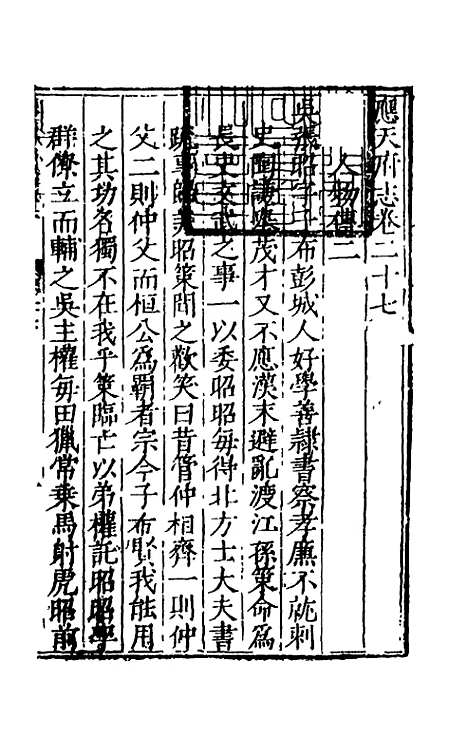 應天府志卷二十七
人物傳二
吳張昭字子布彭城人好學善隸書察孝廉不就刺
史陶謙舉茂才又不應漢末避亂渡江孫策命爲
長史文武之事一以委昭昭每得北方士大夫書
疏專歸美昭策聞之歡笑曰昔管仲相齊一則仲
父二則仲父而恒公爲霸者宗今子布賢我能用
之其功名獨不在我乎策臨亡以弟權託昭昭率
群僚立而輔之吳主權每田獵常乗馬射虎昭前